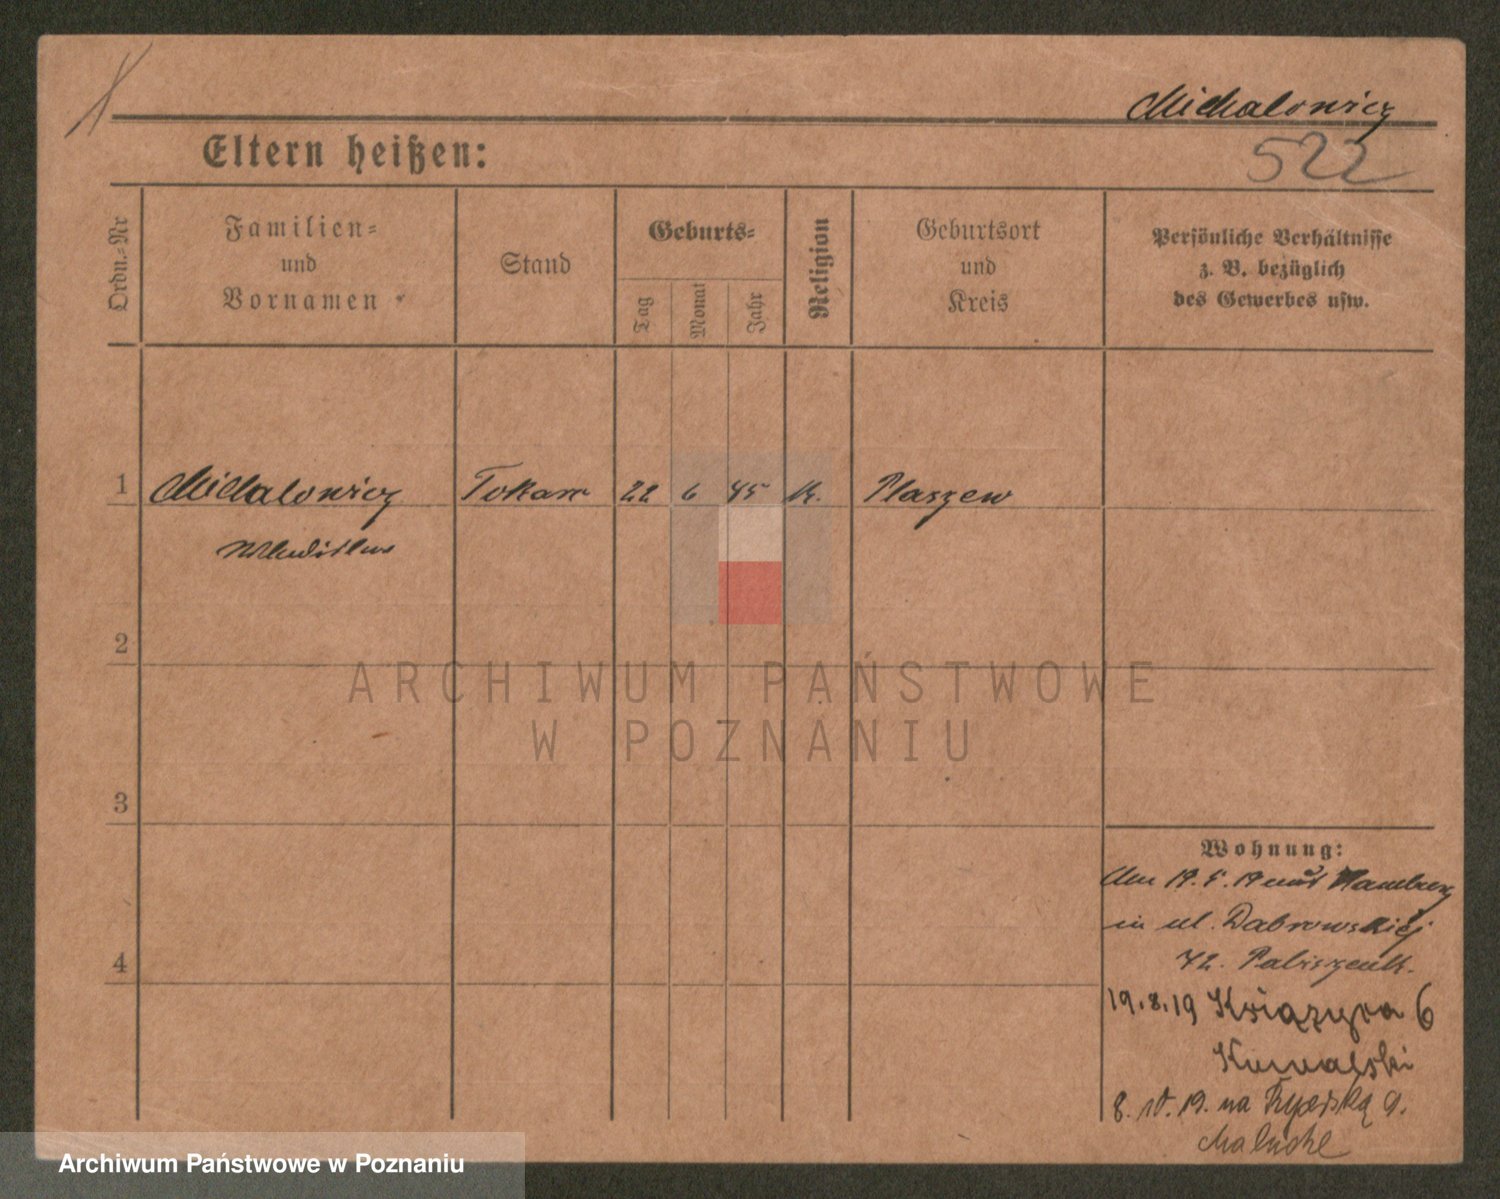 Michalowicz
522
Eltern heißen:
Ordn.-Nr
Familien-
und
Vornamen
Stand
Geburts-
Tag
Monat
Jahr
Religion
Geburtsort
und
Kreis
Persönliche Verhältnisse
z. B. bezüglich
des Gewerbes usw.
1 Michalowicz Tokarz 22 6 45 k. Plaszew
2
3
4
Wohnung:
19.5.19 Hamburg
in ul. Dabrowskiej
42.
19.8.19 6
Kowalski
8. 10. 19. na 9.
ARCHIWUM PAŃSTWOWE
W POZNANIU
Archiwum Państwowe w Poznaniu